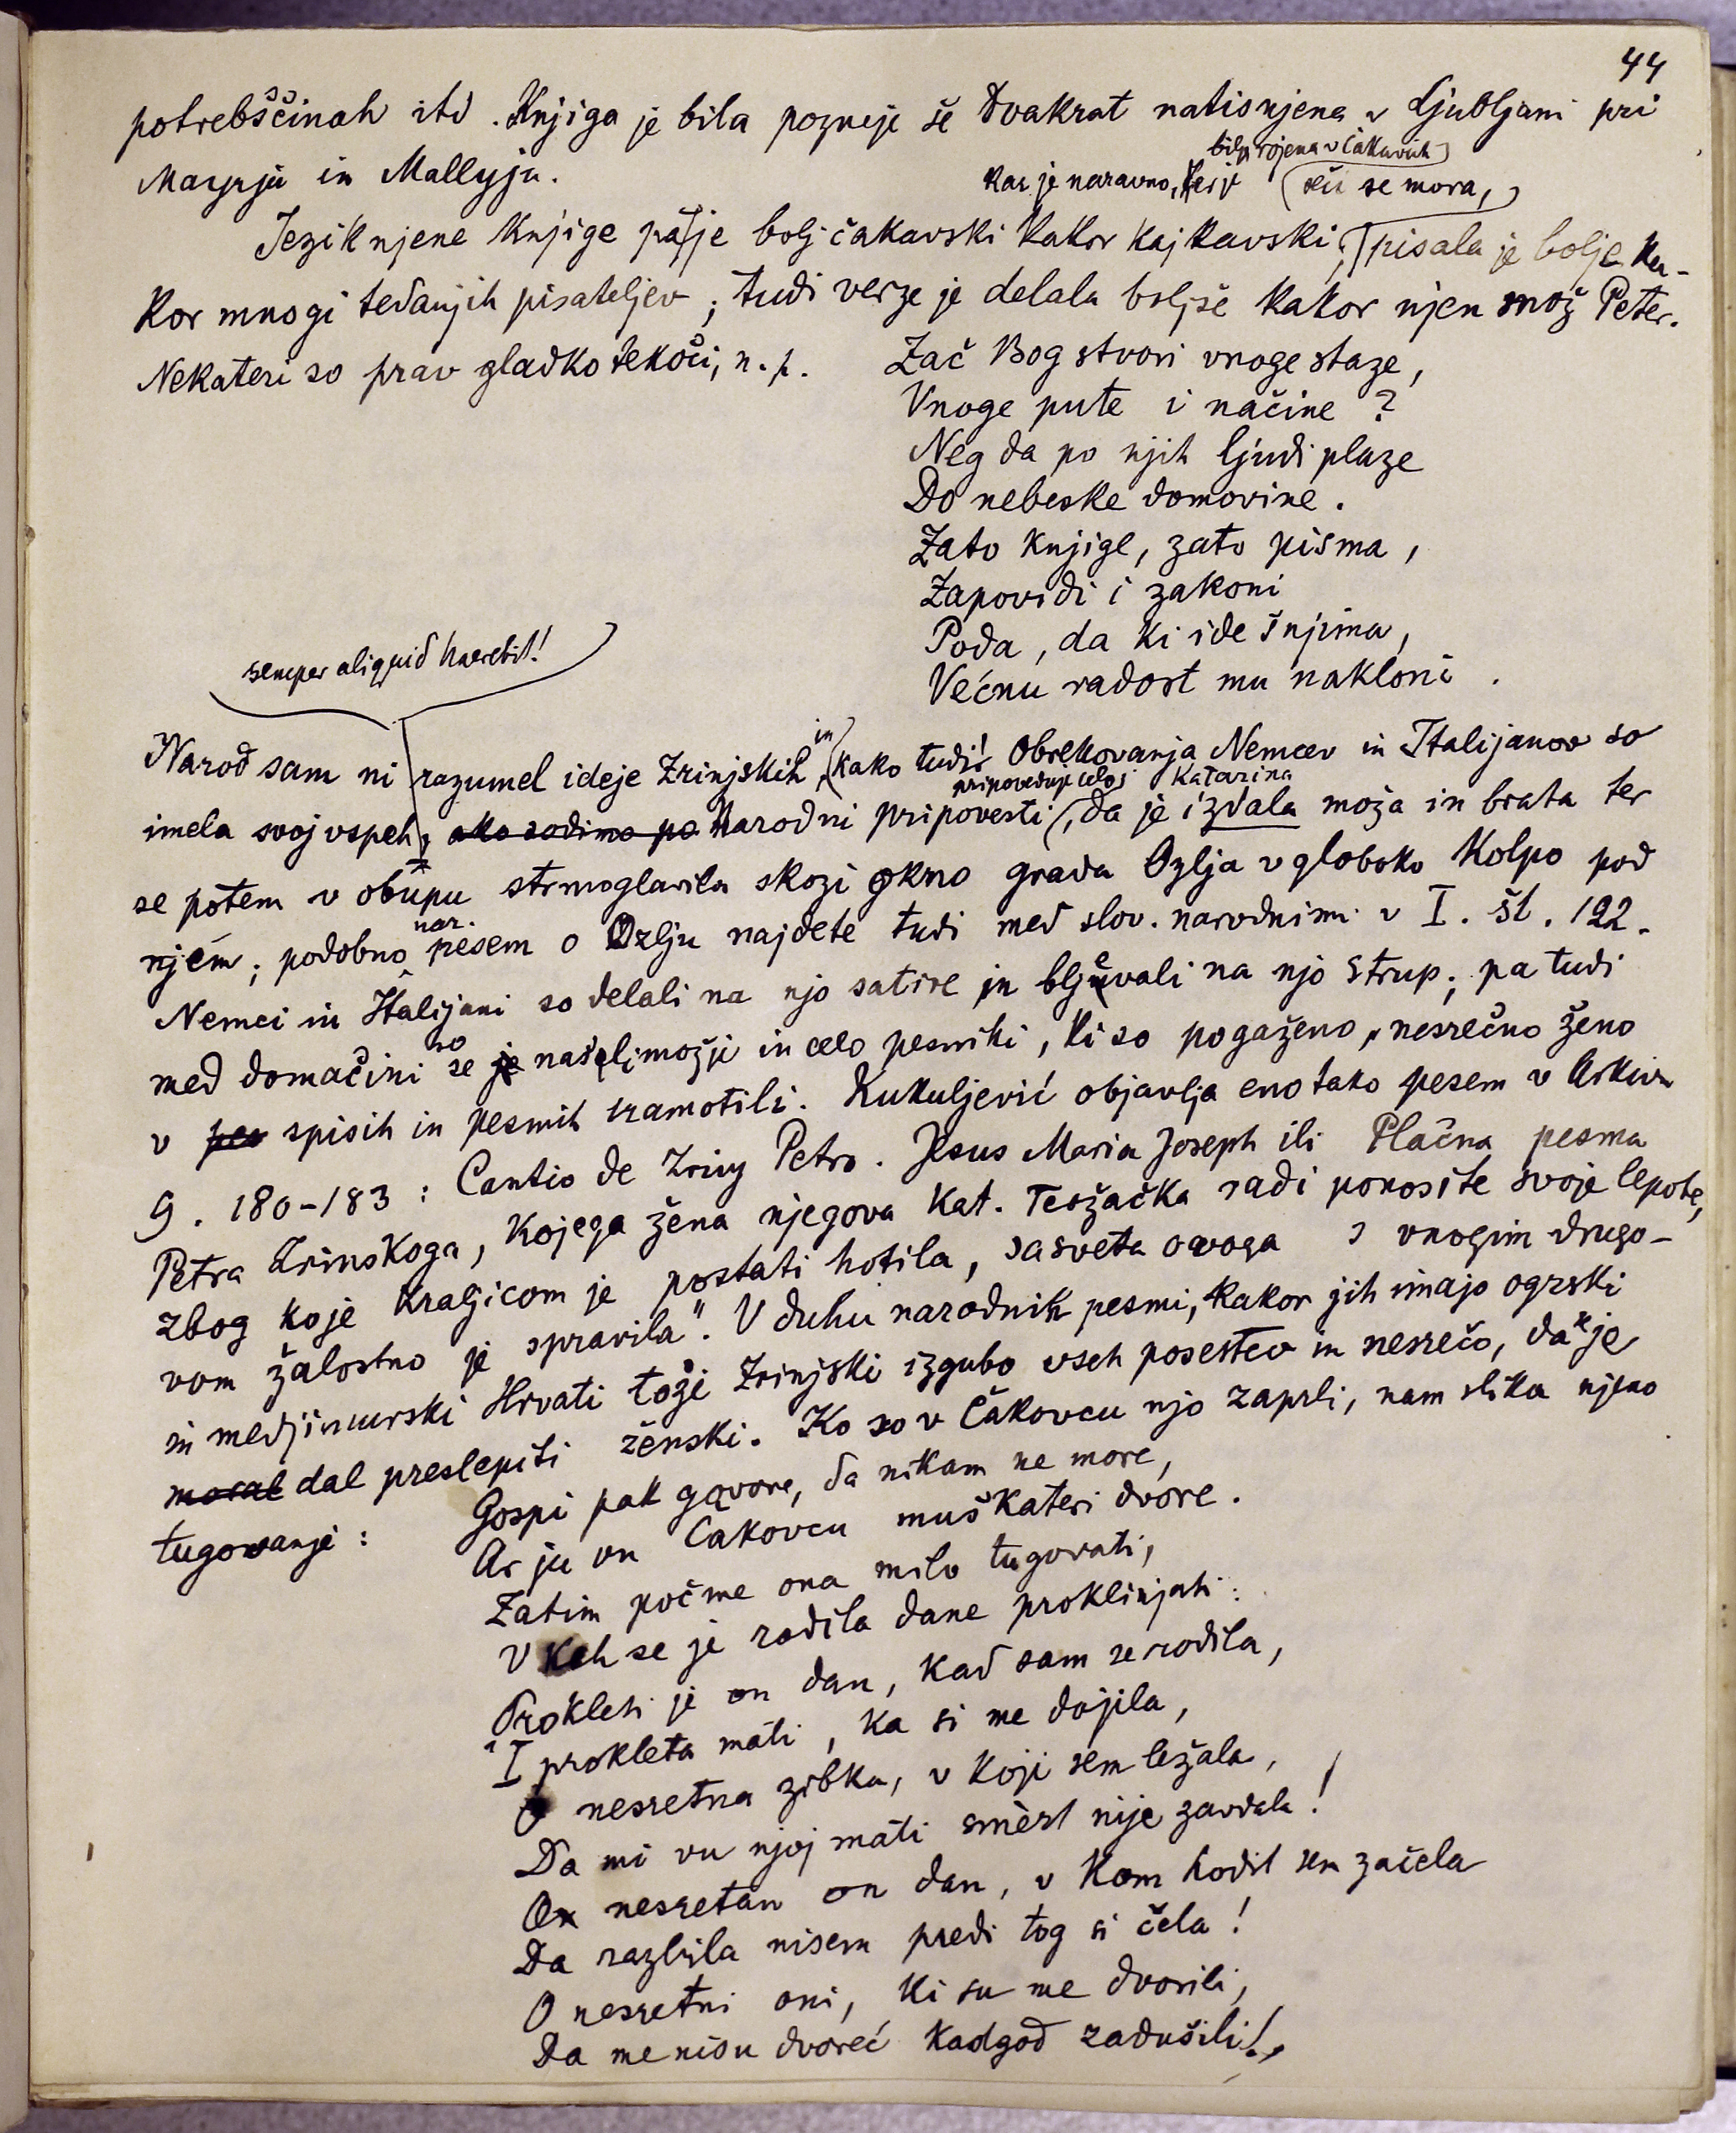 44
potrebščinah itd. Knjiga je bila pozneje še dvakrat natisnjena v Ljubljani pri
Mayrju in Mallyju.
bila rojena v Čakavcih
kar je naravno, ker je (reči se mora,)
Jezik njene knjige pa je bolj čakavski kakor kajkavski; pisala je bolje ka-
kor mnogi tedanjih pisateljev; tudi verze je delala boljše kakor njen mož Peter.
Nekateri so prav gladko tekoči, n. p.
Zač Bog stvori vnoge staze,
Vnoge pute i načine?
Neg da po njih ljudi plaze
Do nebeske domovine.
Zato knjige, zato pisma,
Zapovidi i zakoni
Poda, da ki ide š njima,
Većnu radost mu nakloni.
semper aliquid haerebit!
Narod sam ni razumel ideje Zrinjskih, in kako tudi! Obrekovanja Nemcev in Italijanov so
pripovedujejo celo; Katarina
imela svoj vspeh, ako sodimo po Narodni pripovesti, da je izdala moža in brata ter
se potem v obupu strmoglavila skozi okno grada Ozlja v globoko Kolpo pod
njem; podobno nar. pesem o Ozlju najdete tudi med slov. narodnimi v I. št. 122.
Nemci in Italijani so delali na njo satire in bljevali na njo strup; pa tudi
med domačini so se je našli možji in celo pesniki, ki so pogaženo, nesrečno ženo
v pes spisih in pesmih sramotili. Kukuljević objavlja eno tako pesem v Arkivu
9. 180-183: Cantio de Zriny Petro. Jesus Maria Joseph ili Plačna pesma
Petra Zrinskoga, kojega žena njegova Kat. Teržačka radi ponosite svoje lepote,
zbog koje kraljicom je postati hotila, sa sveta ovoga s vnogim drugo-
vom žalostno je spravila". V duhu narodnih pesmi, kakor jih imajo ogrski
in medjimurski Hrvati toži Zrinjski izgubo vseh posestev in nesrečo, da se je
moral dal preslepiti ženski. Ko so v Čakovcu njo zaprli, nam slika njeno
tugovanje:
Gospi pak govore, da nikam ne more,
Ar ju vu Čakovcu muškateri dvore.
Zatim počme ona milo tugovati,
V keh se je rodila dane proklinjati:
„Prokleti je on dan, kad sam se rodila,
I prokleta mati, ka si me dojila,
O nesretna zibka, v koji sem ležala,
Da mi vu njoj mati smèrt nije zavdala!
On nesretan on dan, v kom hodit sem začela
Da razbila nisem predi tog si čela!
O nesretni oni, ki su me dvorili,
Da me nisu dvoreć kadgod zadušili!„